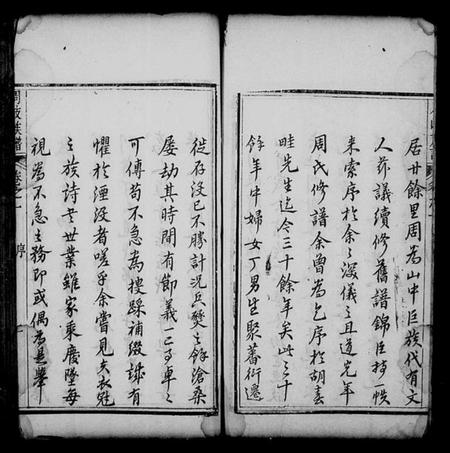 居廿餘里周為山中巨族代有文
人茲議續修舊譜錦臣持一帙
来索序於余余深儀之且道光年
周氏修譜余曾為乞序於胡雲
畦先生迄今三十餘年矣此三十
餘年中婦女丁男生聚蕃衍遷
徙存沒已不勝計況兵燹之餘滄桑
屡劫其時間有節義一二事卓卓
可傳苟不急為搜採補綴誠有
懼於湮没者嗟乎余嘗見夫衣冠
之族詩書世業雖家乘廢墜每
視為不急之務即或偶為是舉
卷之一
序